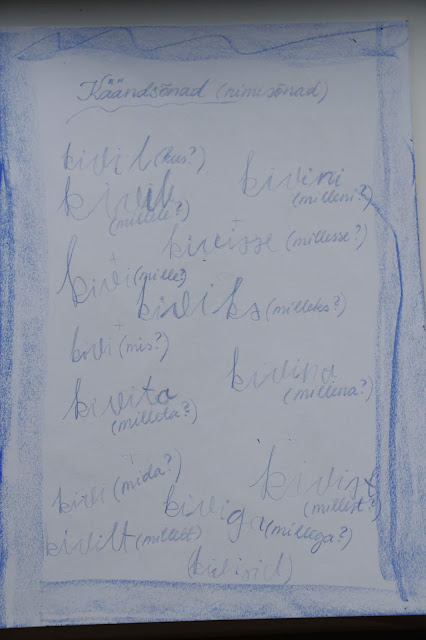 Käändsõnad (nimisõnad)
kivil (kus?)
kivini
(milleni?)
(millele?)
kivisse (millesse?)
kivi (mille?)
kiviks (milleks?)
kivi (mis?)
kivina
(millena?)
kivita
(milleta?)
kivi (mida?)
kivist
(millest?)
kiviga (millega?)
kivilt (millelt)